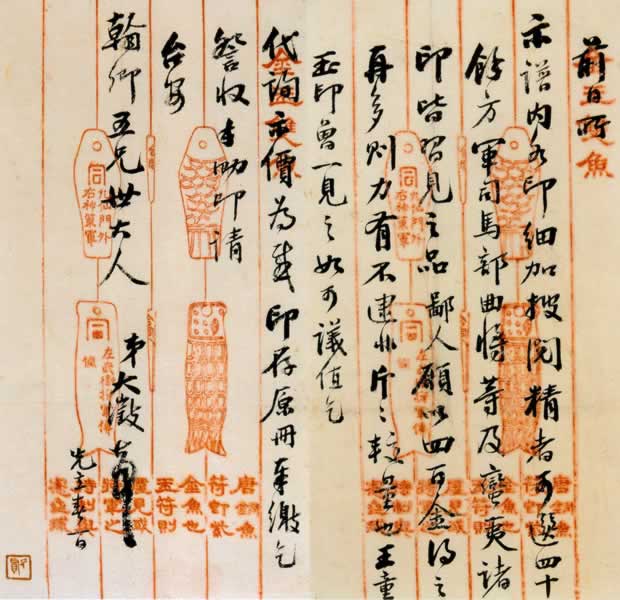 前日所
示譜内各印細加搜閱精者可選四十
餘方軍司馬部曲將等及蠻夷諸
印皆習見之品鄙人願以四百金得之
再多則力有不逮非斤〻較量也王童
玉印曾一見之如可議值乞
代詢示價為幸印存原冊奉繳乞
詧收手泐即請
台安
翰卿五兄世大人
弟大澂頓首
先立春一日
同
九仙門外
右神策軍
同
唐銅魚
金魚也
玉符則
將軍之